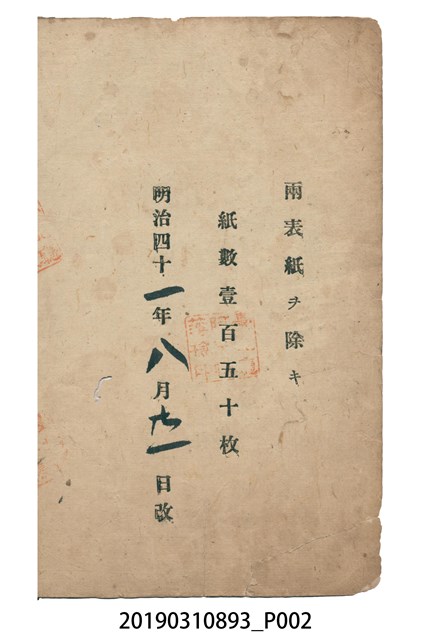 兩表紙ヲ除キ
紙數壹百五十枚
明治四十一年八月廿一日改
20190310893_P002